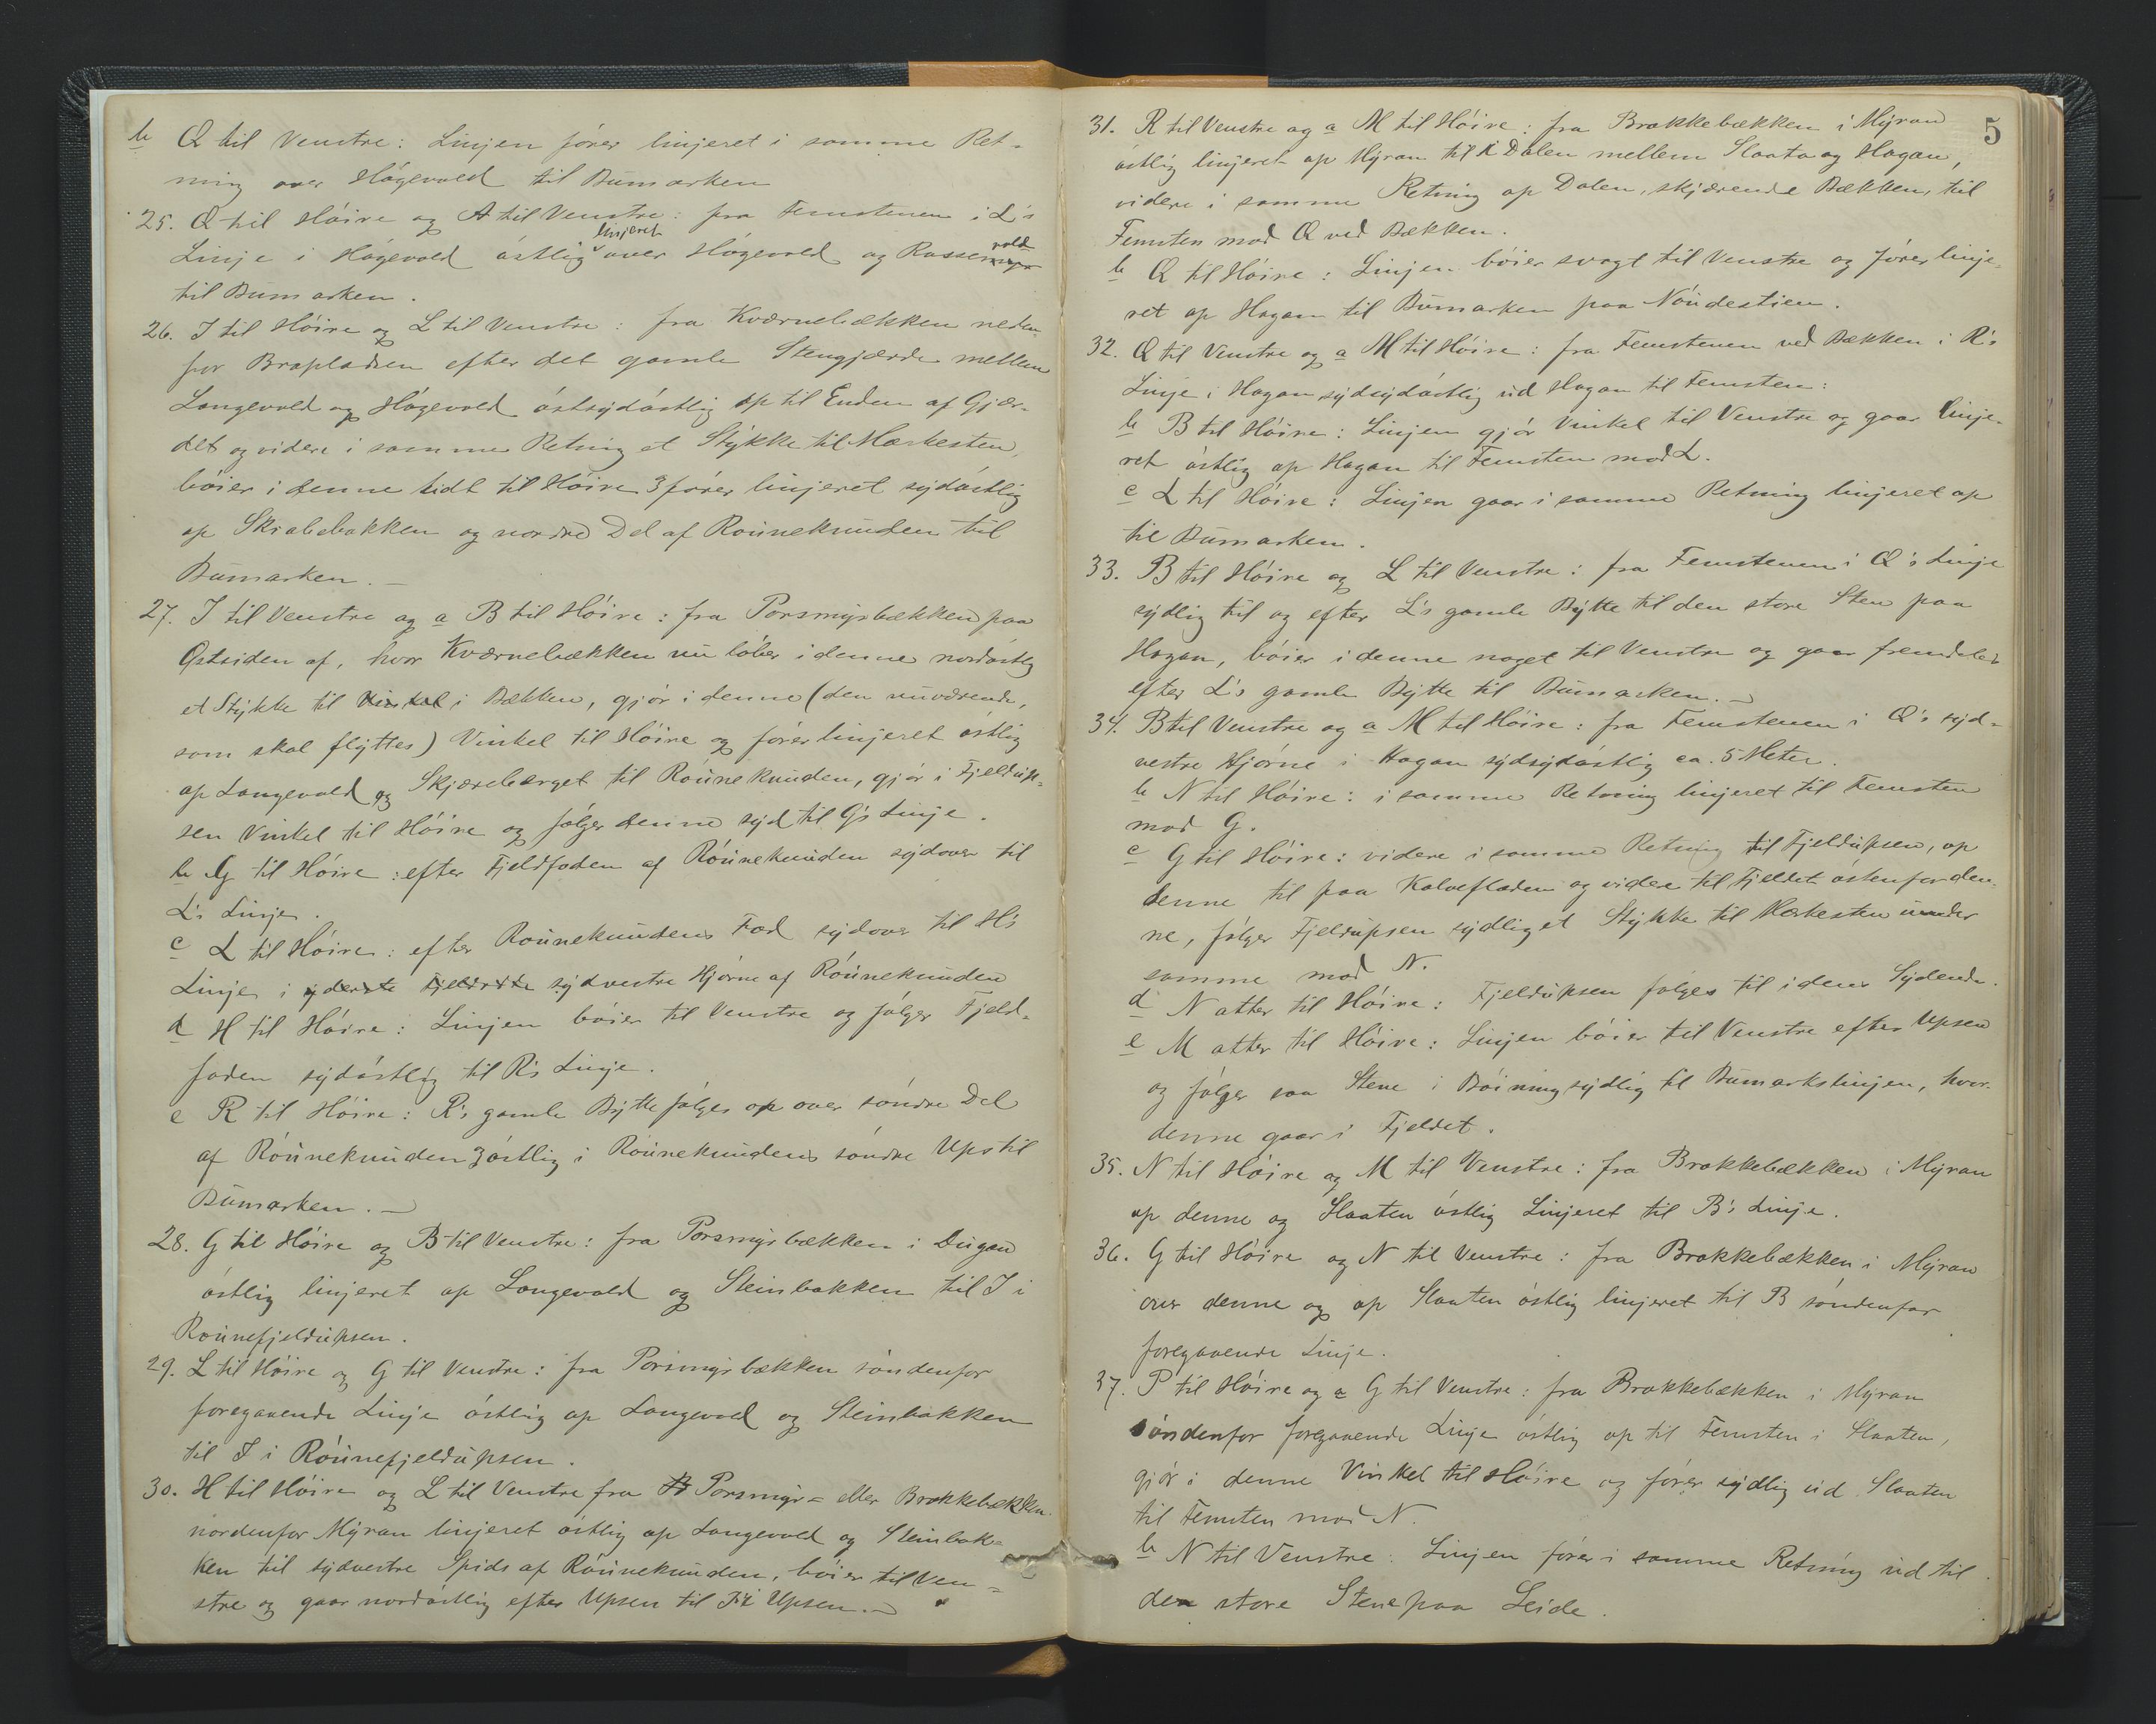 b Q til Venstre: Linjen fører linjeret i samme Ret-
ning over Høgevold til Bumarken
25. Q til Høire og A til Venstre: fra Femstenen i L's
linjeret
Linje i Høgevold østlig over Høgevold og Rossevold
til Bumarken.
26. I til Høire og L til Venstre: fra Kværnebækken neden-
for Brapladsen efter det gamle Stengjærde mellem
Langevold og Høgevold østsydøstlig op til Enden af Gjær-
det og videre i samme Retning et Stykke til Mærkesten,
bøier i denne lidt til Høire & fører linjeret sydøstlig
op Skrabebakken og nordre Del af Rounekunden til
Bumarken. —
27. I til Venstre og a B til Høire: fra Porsmyrbækken paa
Østsiden af, hvor Kværnebækken nu løber i denne nordøstlig
et Stykke til Vinkel i Bækken, gjør i denne (den nuværende,
som skal flyttes) Vinkel til Høire og fører linjeret østlig
op Langevold og Skjæreberget til Rounekunden, gjør i Fjeldup-
sen Vinkel til Høire og følger denne syd til G's Linje.
b G til Høire: efter Fjeldfoden af Rounekunden sydover til
L's Linje.
c L til Høire: efter Rounekundens Fod sydover til H's
Linje i yderste sydvestre Hjørne af Rounekunden
d H til Høire: Linjen bøier til Venstre og følger Fjeld-
foden sydøstlig til R's Linje.
e R til Høire: R's gamle Bytte følges op over søndre Del
af Rounekunden & østlig i Rounekundens søndre Ups til
Bumarken. —
28. G til Høire og B til Venstre: fra Porsmyrbækken i Dugan
østlig linjeret op Langevold og Steinbakken til I i
Rounefjeldupsen.
29. L til Høire og G til Venstre: fra Porsmyrbækken søndenfor
foregaaende Linje østlig op Langevold og Steinbakken
til I i Rounefjeldupsen.
30. H til Høire og L til Venstre fra Porsmyr- eller Brakkebækken
nordenfor Myran linjeret østlig op Langevold og Steinbak-
ken til sydvestre Spids af Rounekunden, bøier til Ven-
stre og gaar nordøstlig efter Upsen til I i Upsen. —
5
31. R til Venstre og a M til Høire: fra Brakkebækken i Myran
østlig linjeret op Myran til Dalen mellem Slaata og Hagan,
videre i samme Retning op Dalen, skjærende Bækken, til
Femsten mod Q ved Bækken.
b Q til Høire: Linjen bøier svagt til Venstre og fører linje-
ret op Hagan til Bumarken paa Nøudestien.
32. Q til Venstre og a M til Høire: fra Femstenen ved Bækken i R's
Linje i Hagan sydsydøstlig ud Hagan til Femsten:
b B til Høire: Linjen gjør Vinkel til Venstre og gaar linje-
ret østlig op Hagan til Femsten mod L.
c L til Høire: Linjen gaar i samme Retning linjeret op
til Bumarken.
33. B til Høire og L til Venstre: fra Femstenen i Q's Linje
sydlig til og efter L's gamle Bytte til den store Sten paa
Hagan, bøier i denne noget til Venstre og gaar fremdeles
efter L's gamle Bytte til Bumarken. —
34. B til Venstre og a M til Høire: fra Femstenen i Q's syd-
vestre Hjørne i Hagan sydsydøstlig ca. 5 Meter.
b N til Høire: i samme Retning linjeret til Femsten
mod G.
c G til Høire: videre i samme Retning til Fjeldupsen, op
denne til paa Kalvefladen og videre til Fjeldet østenfor den-
ne, følger Fjeldupsen sydlig et Stykke til Mærkesten under
samme mod N.
d N atter til Høire: Fjeldupsen følges til i dens Sydende.
e M atter til Høire: Linjen bøier til Venstre efter Upsen
og følger saa Stene i Bøining sydlig til Bumarkslinjen, hvor
denne gaar i Fjeldet.
35. N til Høire og M til Venstre: fra Brakkebækken i Myran
op denne og Slaaten østlig Linjeret til B's Linje.
36. G til Høire og N til Venstre: fra Brakkebækken i Myran
over denne og op Slaaten østlig linjeret til B søndenfor
foregaaende Linje.
37. P til Høire og a G til Venstre: fra Brakkebækken i Myran
søndenfor foregaaende Linje østlig op til Femsten i Slaaten,
gjør i denne Vinkel til Høire og fører sydlig ud Slaaten
til Femsten mod N.
b N til Venstre: Linjen fører i samme Retning ud til
den store Stene paa Leide.